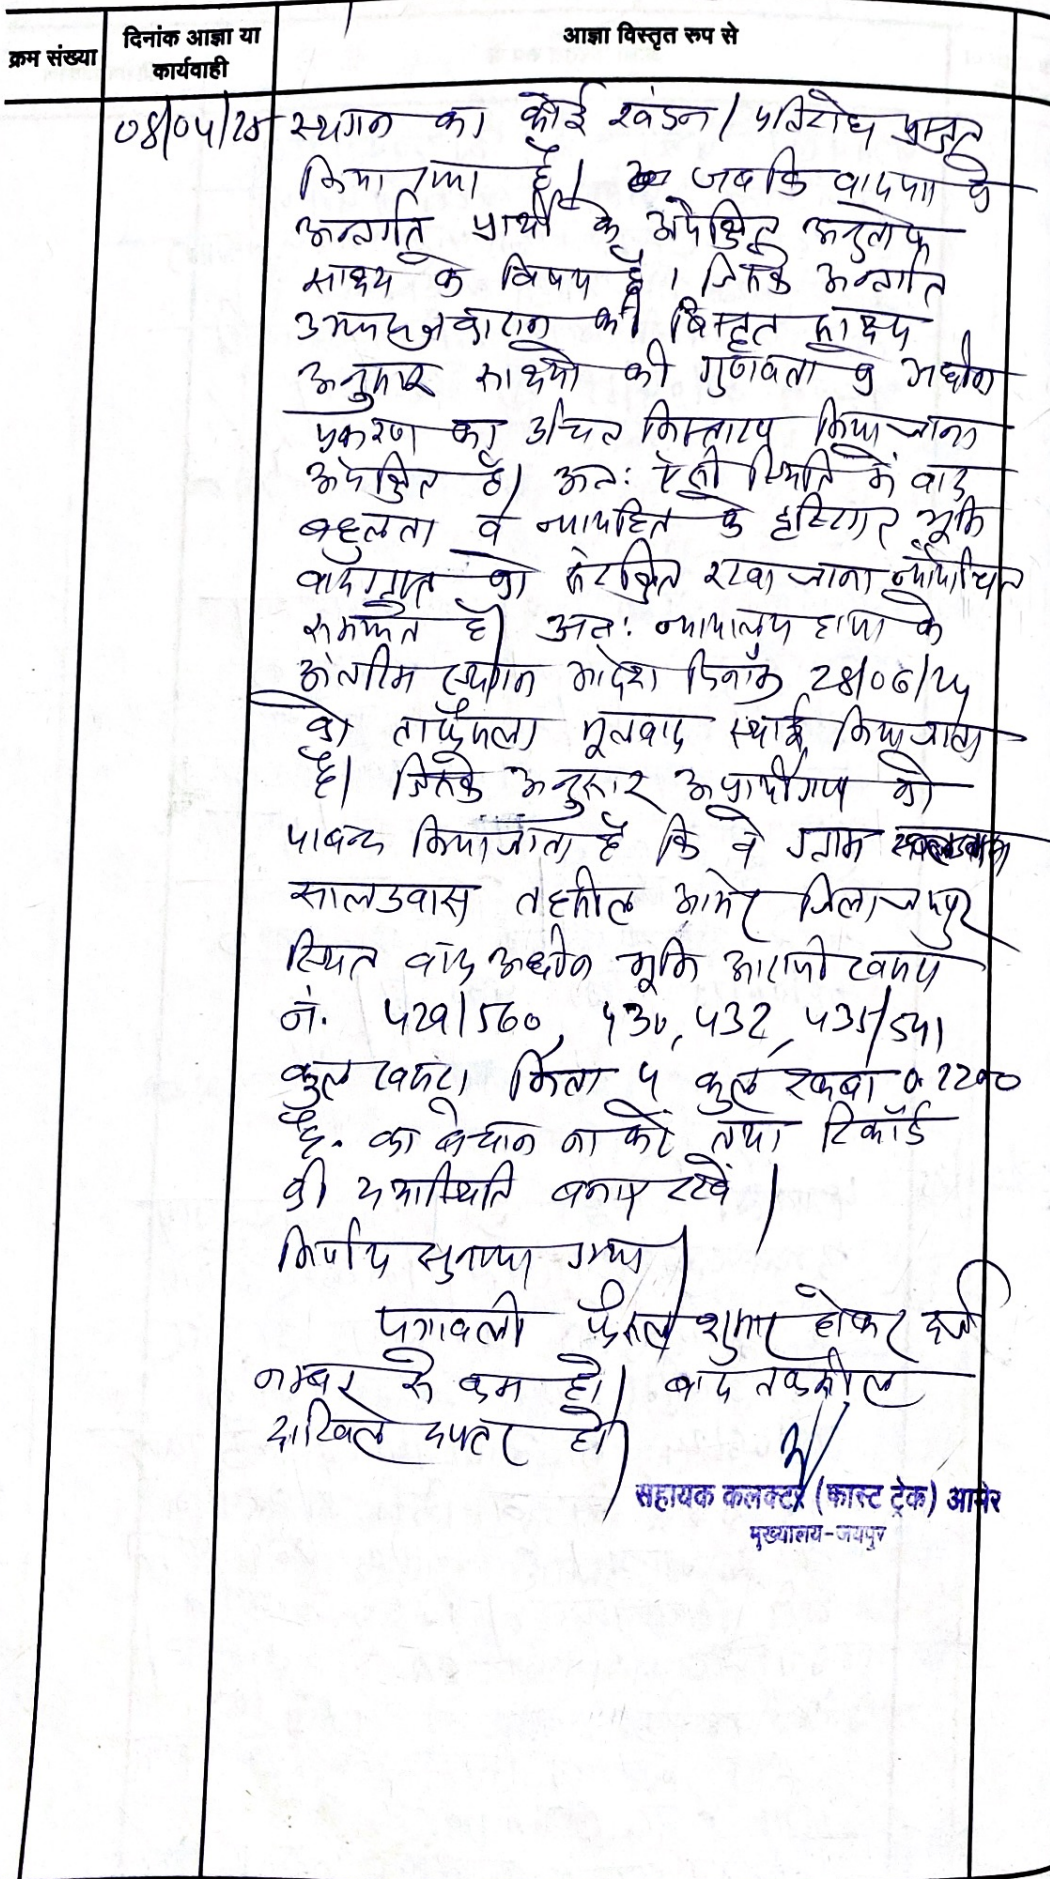 क्रम संख्या
दिनांक आज्ञा या
कार्यवाही
आज्ञा विस्तृत रुप से
08/04/25 स्थगन का कोई खंडन / प्रतिरोध प्रस्तुत
किया गया है। जबकि वादपत्र के
अन्तर्गत प्रार्थी के अपेक्षित अनुतोष
साक्ष्य के विषय है। जिसके अन्तर्गत
उभयपक्षकारान की विस्तृत साक्ष्य
अनुसार साक्ष्यों की गुणवता के अधीन
प्रकरण का उचित निस्तारण किया जाना
अपेक्षित है। अतः ऐसी स्थिति में वाद
बहुलता व न्यायहित के दृष्टिगत भूमि
वादग्रस्त को संरक्षित रखा जाना न्यायोचित
समझते है। अतः न्यायालय द्वारा के
अंतरिम स्थगन आदेश दिनांक 28/06/24
को ताफैसला मूलवाद स्थाई किया जाता
है। जिसके अनुसार अप्रार्थीगण को
पाबन्द किया जाता है कि वे ग्राम
सालडवास तहसील आमेर जिला जयपुर
स्थित वाद अधीन भूमि आराजी खसरा
नं. 429/560, 430, 432, 435/541
कुल खसरा किता 4 कुल रकबा 0.2200
है. का बेचान ना करें तथा रिकॉर्ड
की यथास्थिति बनाए रखें।
निर्णय सुनाया गया।
पत्रावली फैसल शुमार होकर दर्ज
नम्बर से कम हो। बाद तकमील
दाखिल दफ्तर हो।
सहायक कलक्टर (फास्ट ट्रेक) आमेर
मुख्यालय-जयपुर